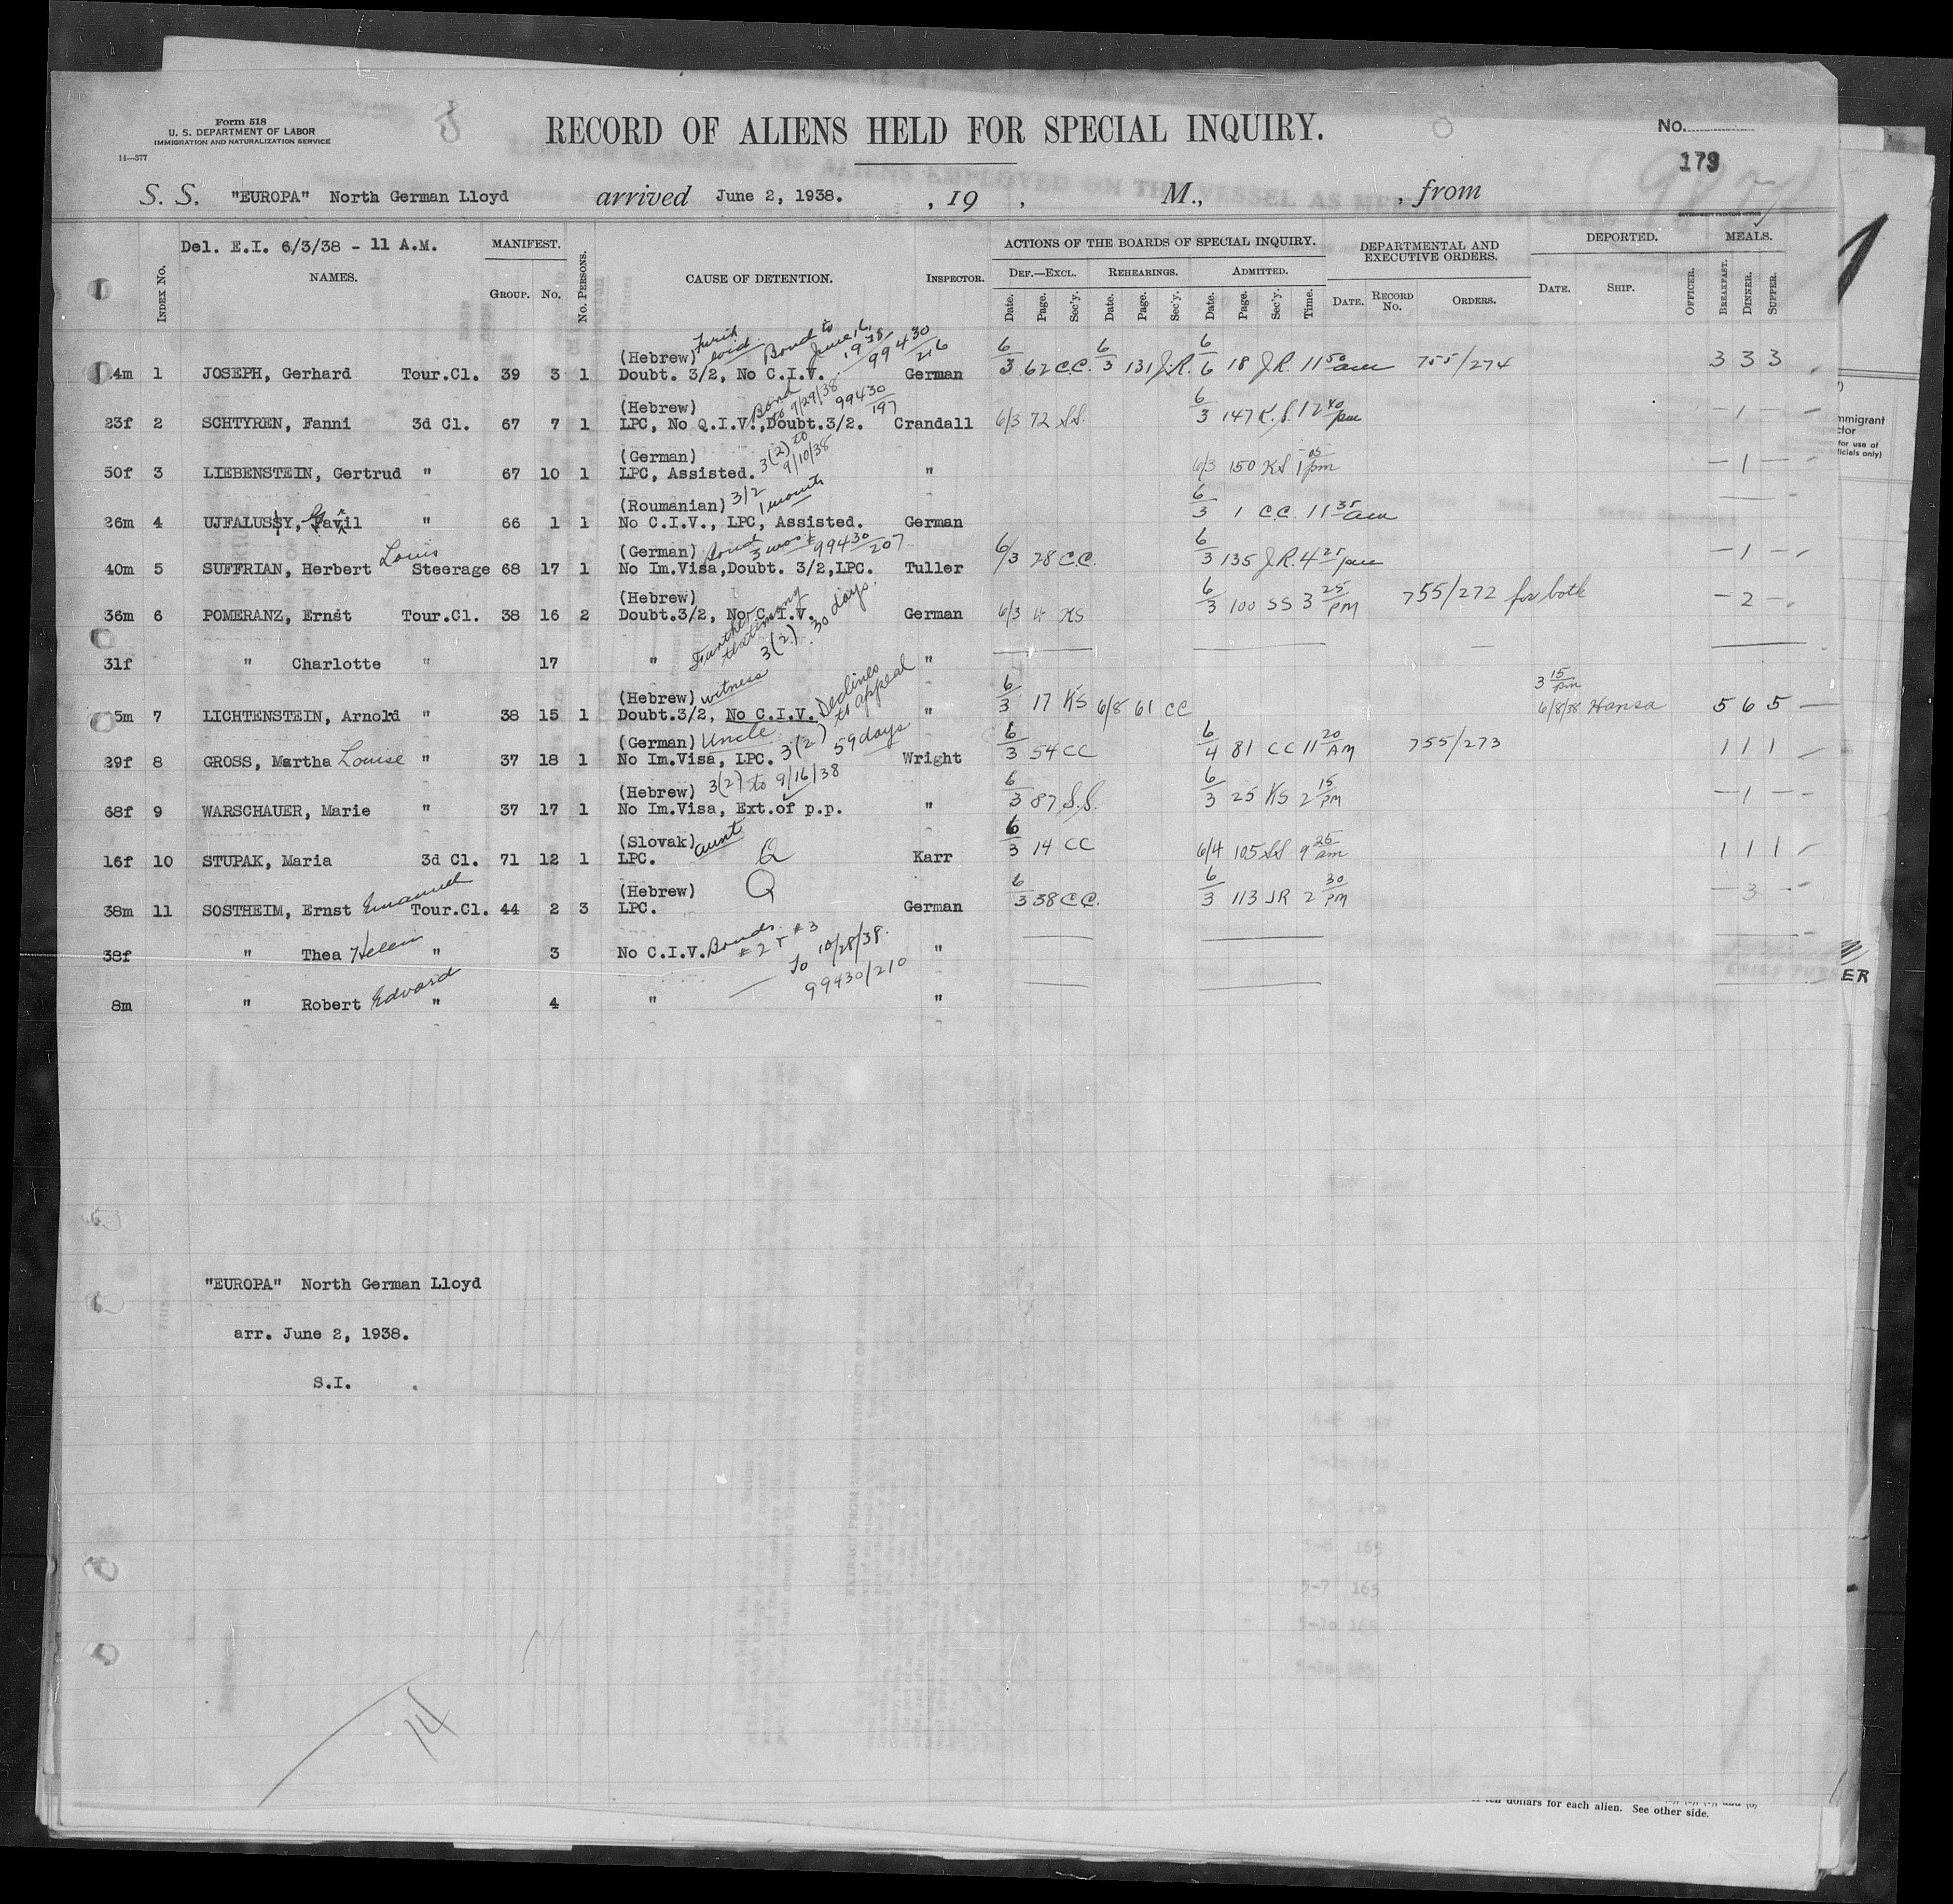 Form 518
U. S. DEPARTMENT OF LABOR
IMMIGRATION AND NATURALIZATION SERVICE
14—377
RECORD OF ALIENS HELD FOR SPECIAL INQUIRY.
No.
179
S. S. "EUROPA" North German Lloyd arrived June 2, 1938. , 19 , M., , from
Del. E.I. 6/3/38 - 11 A.M. MANIFEST. ACTIONS OF THE BOARDS OF SPECIAL INQUIRY. DEPARTMENTAL AND EXECUTIVE ORDERS. DEPORTED. MEALS.
INDEX No. NAMES. GROUP. No. No. PERSONS. CAUSE OF DETENTION. INSPECTOR. DEF.—EXCL. REHEARINGS. ADMITTED.
Date. Page. Sec'y. Date. Page. Sec'y. Date. Page. Sec'y. Time. DATE. RECORD No. ORDERS. DATE. SHIP. OFFICER. BREAKFAST. DINNER. SUPPER.
(Hebrew) Bond to June 16, 1938 99430/216
4m 1 JOSEPH, Gerhard Tour.Cl. 39 3 1 Doubt. 3/2, No C.I.V. German 6/3 62 C.C. 6/3 131 J.R. 6/6 18 J.R. 11 50 am 755/274 3 3 3
(Hebrew) Bond to 9/29/38 99430/197
23f 2 SCHTYREN, Fanni 3d Cl. 67 7 1 LPC, No Q.I.V.,Doubt.3/2. Crandall 6/3 72 SS. 6/3 147 K.S. 12 40 pm — 1 —
(German) 3(2) to 9/10/38
50f 3 LIEBENSTEIN, Gertrud " 67 10 1 LPC, Assisted. " 6/3 150 KS 1 05 pm — 1 —
(Roumanian) 3/2 1 month
26m 4 UJFALUSSY, Gavil " 66 1 1 No C.I.V., LPC, Assisted. German 6/3 1 C.C. 11 35 am
(German) Bond 3 mos 99430/207
40m 5 SUFFRIAN, Herbert Louis Steerage 68 17 1 No Im.Visa,Doubt. 3/2,LPC. Tuller 6/3 78 C.C. 6/3 135 J.R. 4 25 pm — 1 —
(Hebrew)
36m 6 POMERANZ, Ernst Tour.Cl. 38 16 2 Doubt.3/2, No C.I.V. German 6/3 4 KS 6/3 100 SS 3 25 PM 755/272 for both — 2 —
Further testimony 3(2) 30 days.
31f " Charlotte " 17 " "
(Hebrew) witness Declines to appeal
5m 7 LICHTENSTEIN, Arnold " 38 15 1 Doubt.3/2, No C.I.V. " 6/3 17 KS 6/8 61 CC 3 15 pm 6/8/38 Hansa 5 6 5 —
(German) Uncle 3(2) 59 days
29f 8 GROSS, Martha Louise " 37 18 1 No Im.Visa, LPC. Wright 6/3 54 CC 6/4 81 CC 11 20 AM 755/273 1 1 1
(Hebrew) 3(2) to 9/16/38
68f 9 WARSCHAUER, Marie " 37 17 1 No Im.Visa, Ext.of p.p. " 6/3 87 S.S. 6/3 25 KS 2 15 PM — 1 —
(Slovak) aunt
16f 10 STUPAK, Maria 3d Cl. 71 12 1 LPC. Q Karr 6/3 14 CC 6/4 105 SS 9 25 am 1 1 1
(Hebrew) Q
38m 11 SOSTHEIM, Ernst Emanuel Tour.Cl. 44 2 3 LPC. German 6/3 38 C.C. 6/3 113 JR 2 30 PM — 3 —
38f " Thea Helen " 3 No C.I.V. Bonds #2 + #3 "
To 10/28/38.
99430/210
8m " Robert Edward " 4 " "
"EUROPA" North German Lloyd
arr. June 2, 1938.
S.I.
14
ten dollars for each alien. See other side.
mmigrant
ctor
for use of
ficials only)
ER